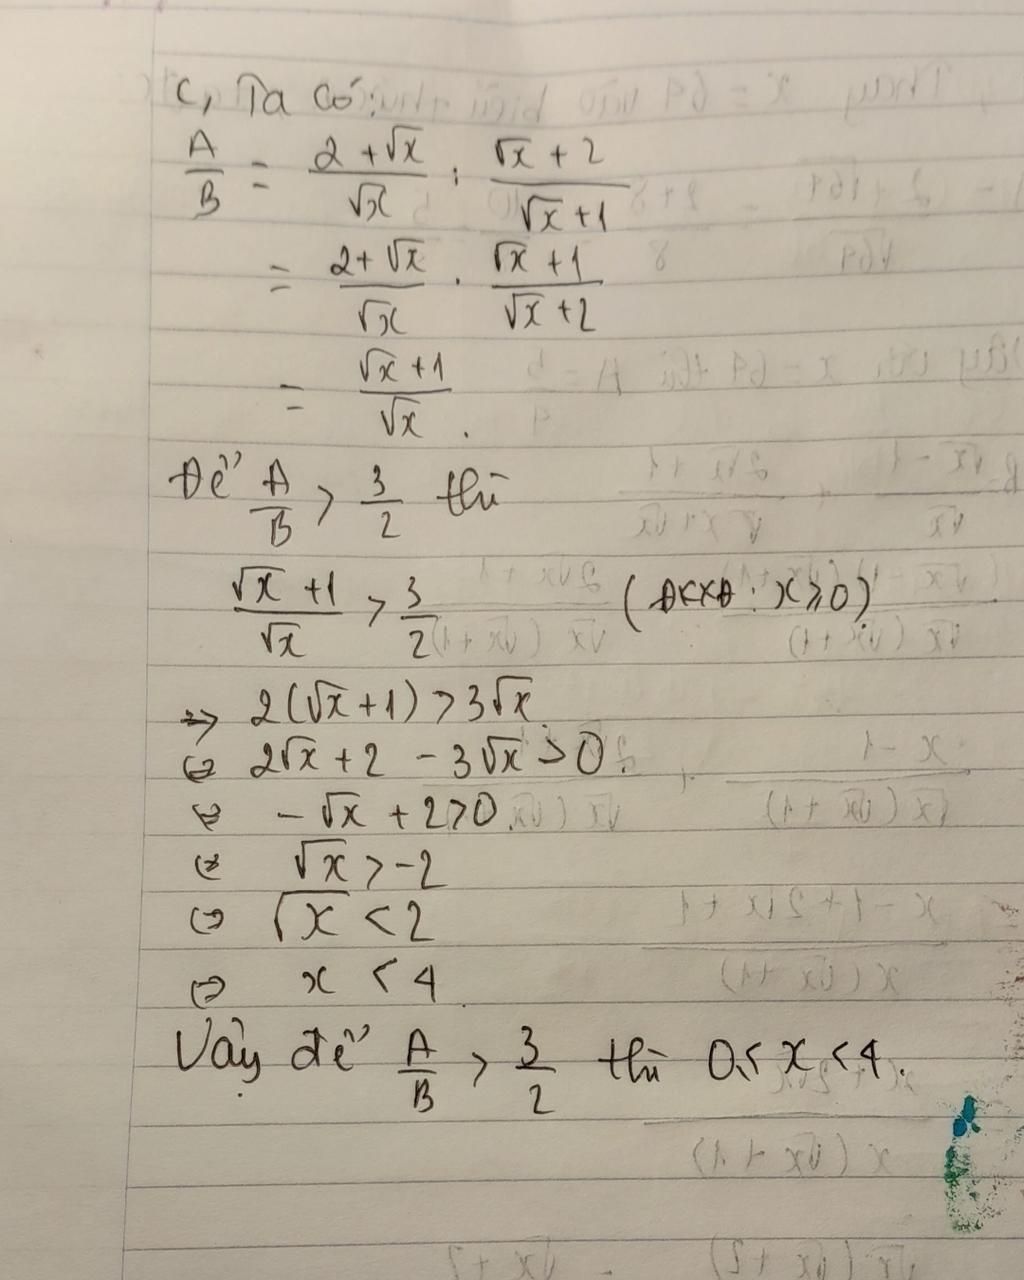 c, Ta có:
A/B = (2+√x)/√x : (√x+2)/(√x+1)
= (2+√x)/√x . (√x+1)/(√x+2)
= (√x+1)/√x .
Để A/B > 3/2 thì
(√x+1)/√x > 3/2 (ĐKXĐ: x ≥ 0)
⇒ 2(√x+1) > 3√x
⇔ 2√x + 2 - 3√x > 0.
⇔ -√x + 2 > 0.
⇔ √x > -2
⇔ √x < 2
⇔ x < 4.
Vậy để A/B > 3/2 thì 0 ≤ x < 4.